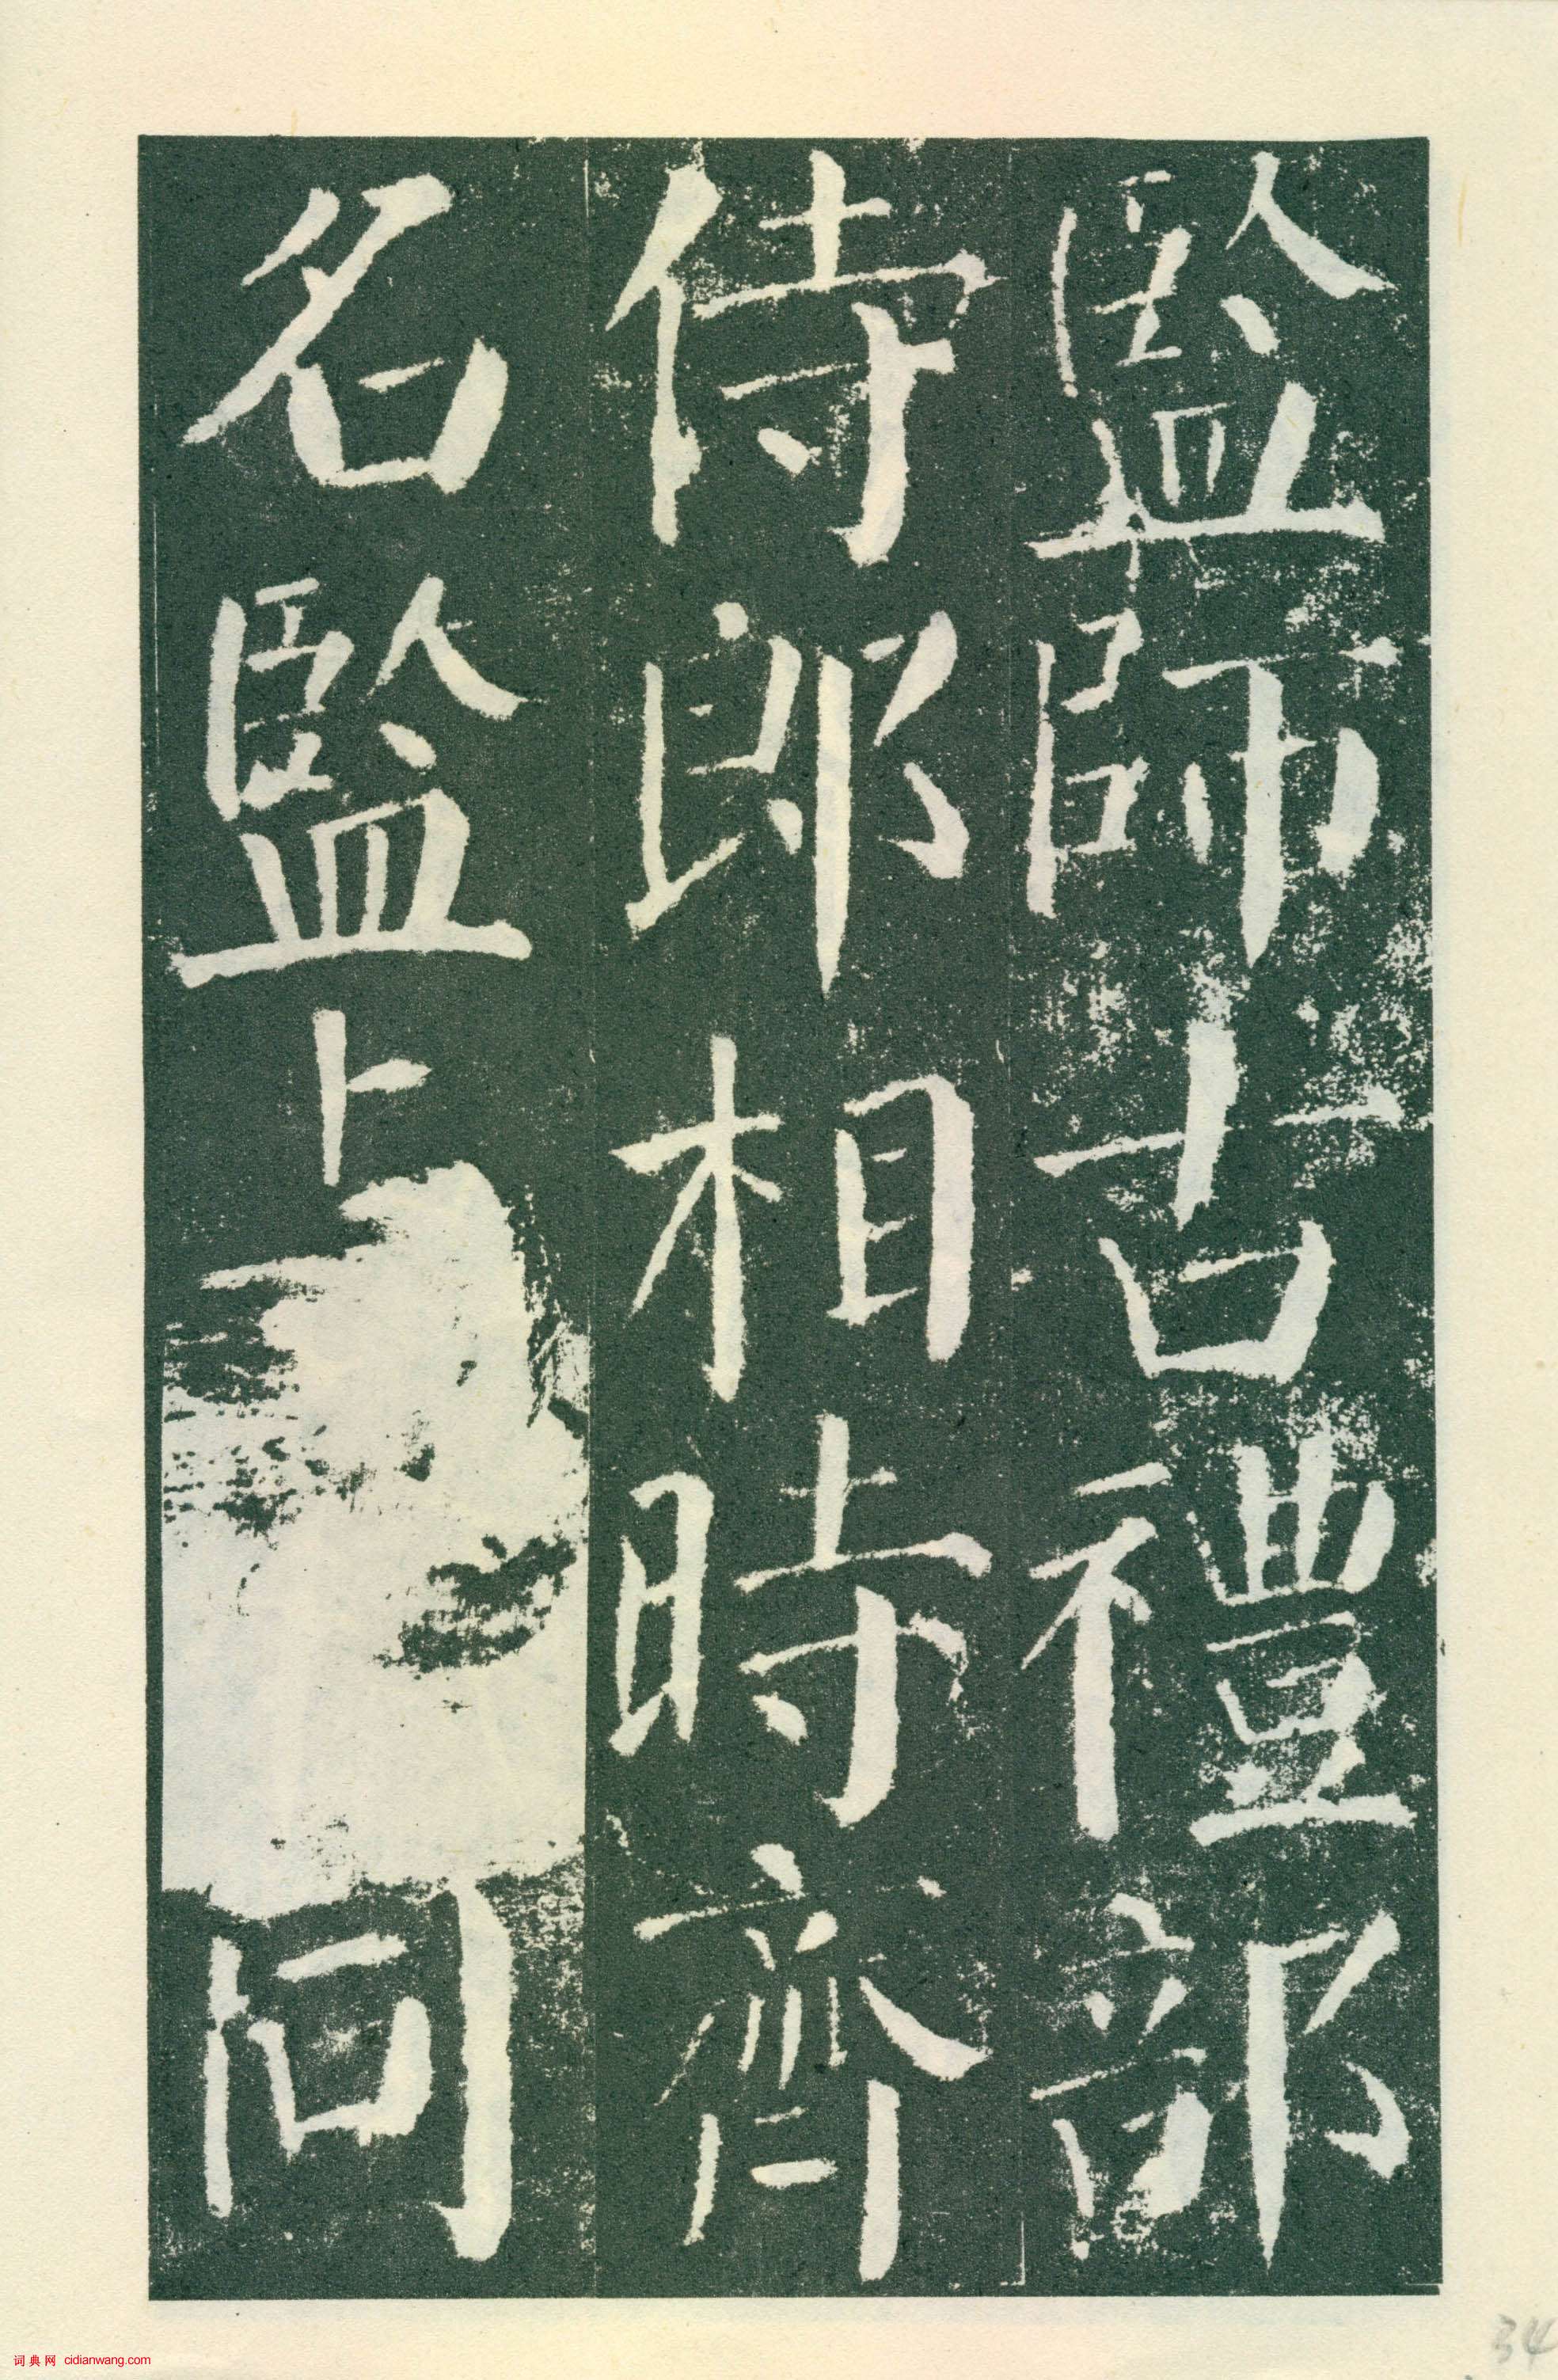 監師古禮部
侍郎相時齊
名監與向
词典网 cidianwang.com
34